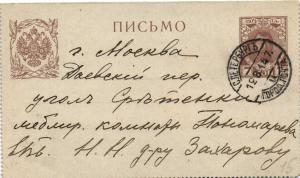 ПИСЬМО
г. Москва
Даевский пер.
уголъ Срѣтенки
меблир. комнаты Пономарева
Въ. Н. Н. д-ру Захарову